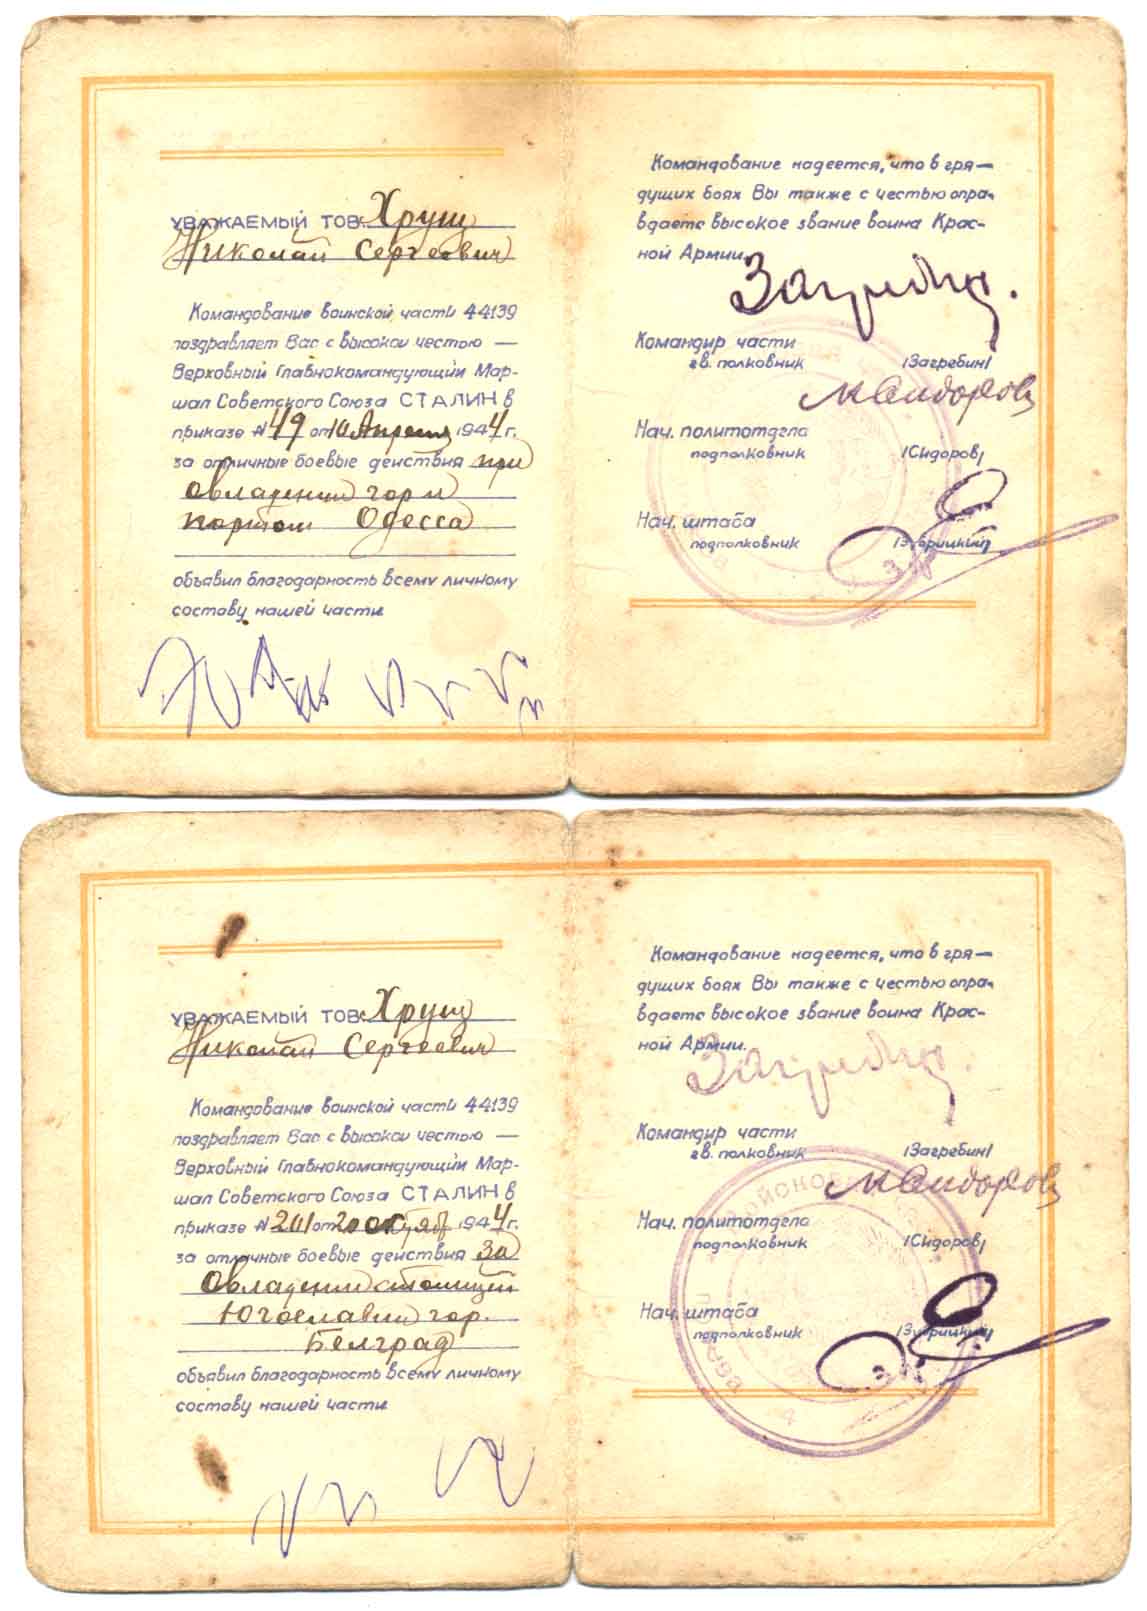 УВАЖАЕМЫЙ ТОВ. Хрущ
Николай Сергеевич
Командование воинской части 44139
поздравляет Вас с высокой честью —
Верховный Главнокомандующий Мар-
шал Советского Союза СТАЛИН в
приказе № 49 от 10 Апреля 1944 г.
за отличные боевые действия при
овладении гор и
портом Одесса
объявил благодарность всему личному
составу нашей части
Командование надеется, что в гря—
дущих боях Вы также с честью опра-
вдаете высокое звание воина Крас-
ной Армии.
Загребин.
Командир части
гв. полковник /Загребин/
МСидоров
Нач. политотдела
подполковник /Сидоров/
Нач. штаба
подполковник /Зубрицкий/
УВАЖАЕМЫЙ ТОВ. Хрущ
Николай Сергеевич
Командование воинской части 44139
поздравляет Вас с высокой честью —
Верховный Главнокомандующий Мар-
шал Советского Союза СТАЛИН в
приказе № 201 от 20 октяб 1944 г.
за отличные боевые действия За
Овладении столицей
Югославии гор.
Белград
объявил благодарность всему личному
составу нашей части
Командование надеется, что в гря—
дущих боях Вы также с честью опра-
вдаете высокое звание воина Крас-
ной Армии.
Загребин.
Командир части
гв. полковник /Загребин/
МСидоров
Нач. политотдела
подполковник /Сидоров/
Нач. штаба
подполковник /Зубрицкий/